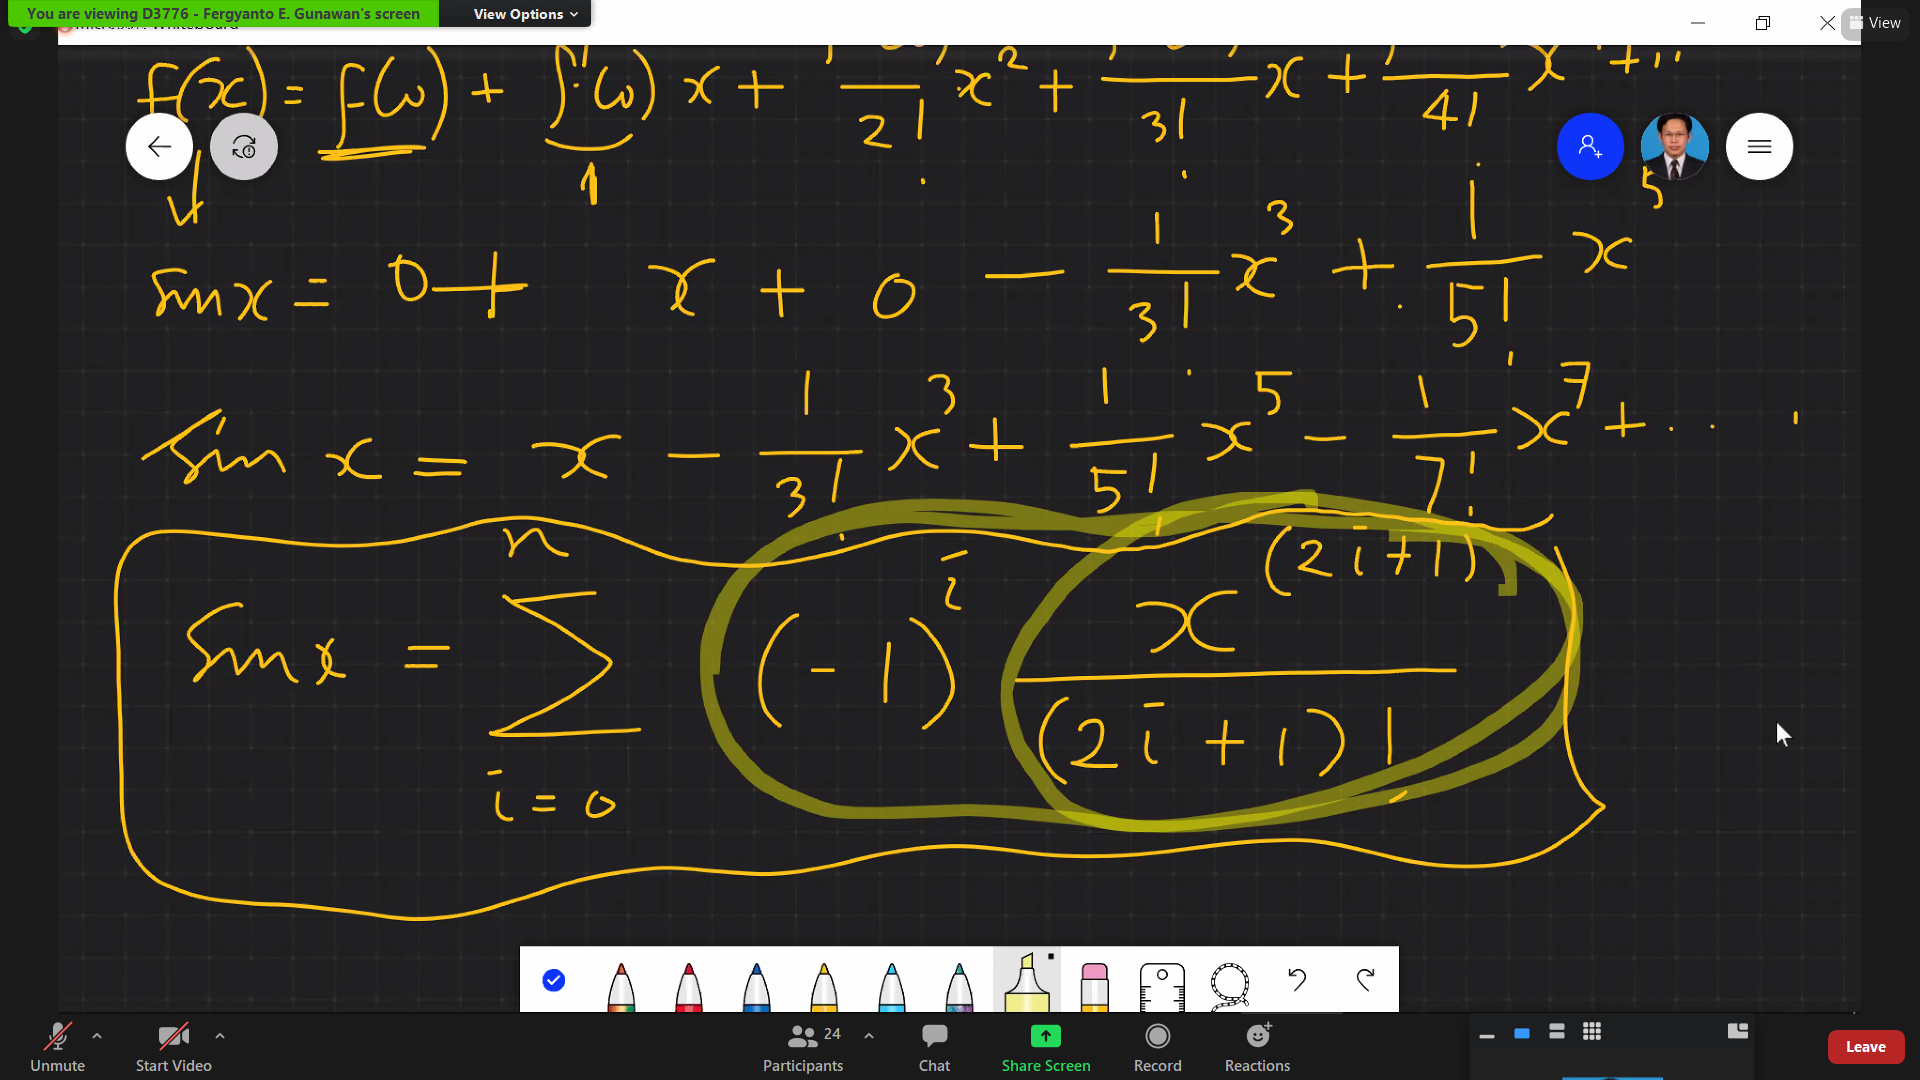 You are viewing D3776 - Fergyanto E. Gunawan's screen
View Options
View
f(x) = f(0) + f'(0) x + /2! x² + /3! x + /4! x + ...
1
sin x = 0 + x + 0 - 1/3! x³ + 1/5! x⁵
sin x = x - 1/3! x³ + 1/5! x⁵ - 1/7! x⁷ + ...
sin x = Σ (-1)^i x^(2i+1) / (2i+1)!
n
i = 0
Unmute
Start Video
Participants
24
Chat
Share Screen
Record
Reactions
Leave